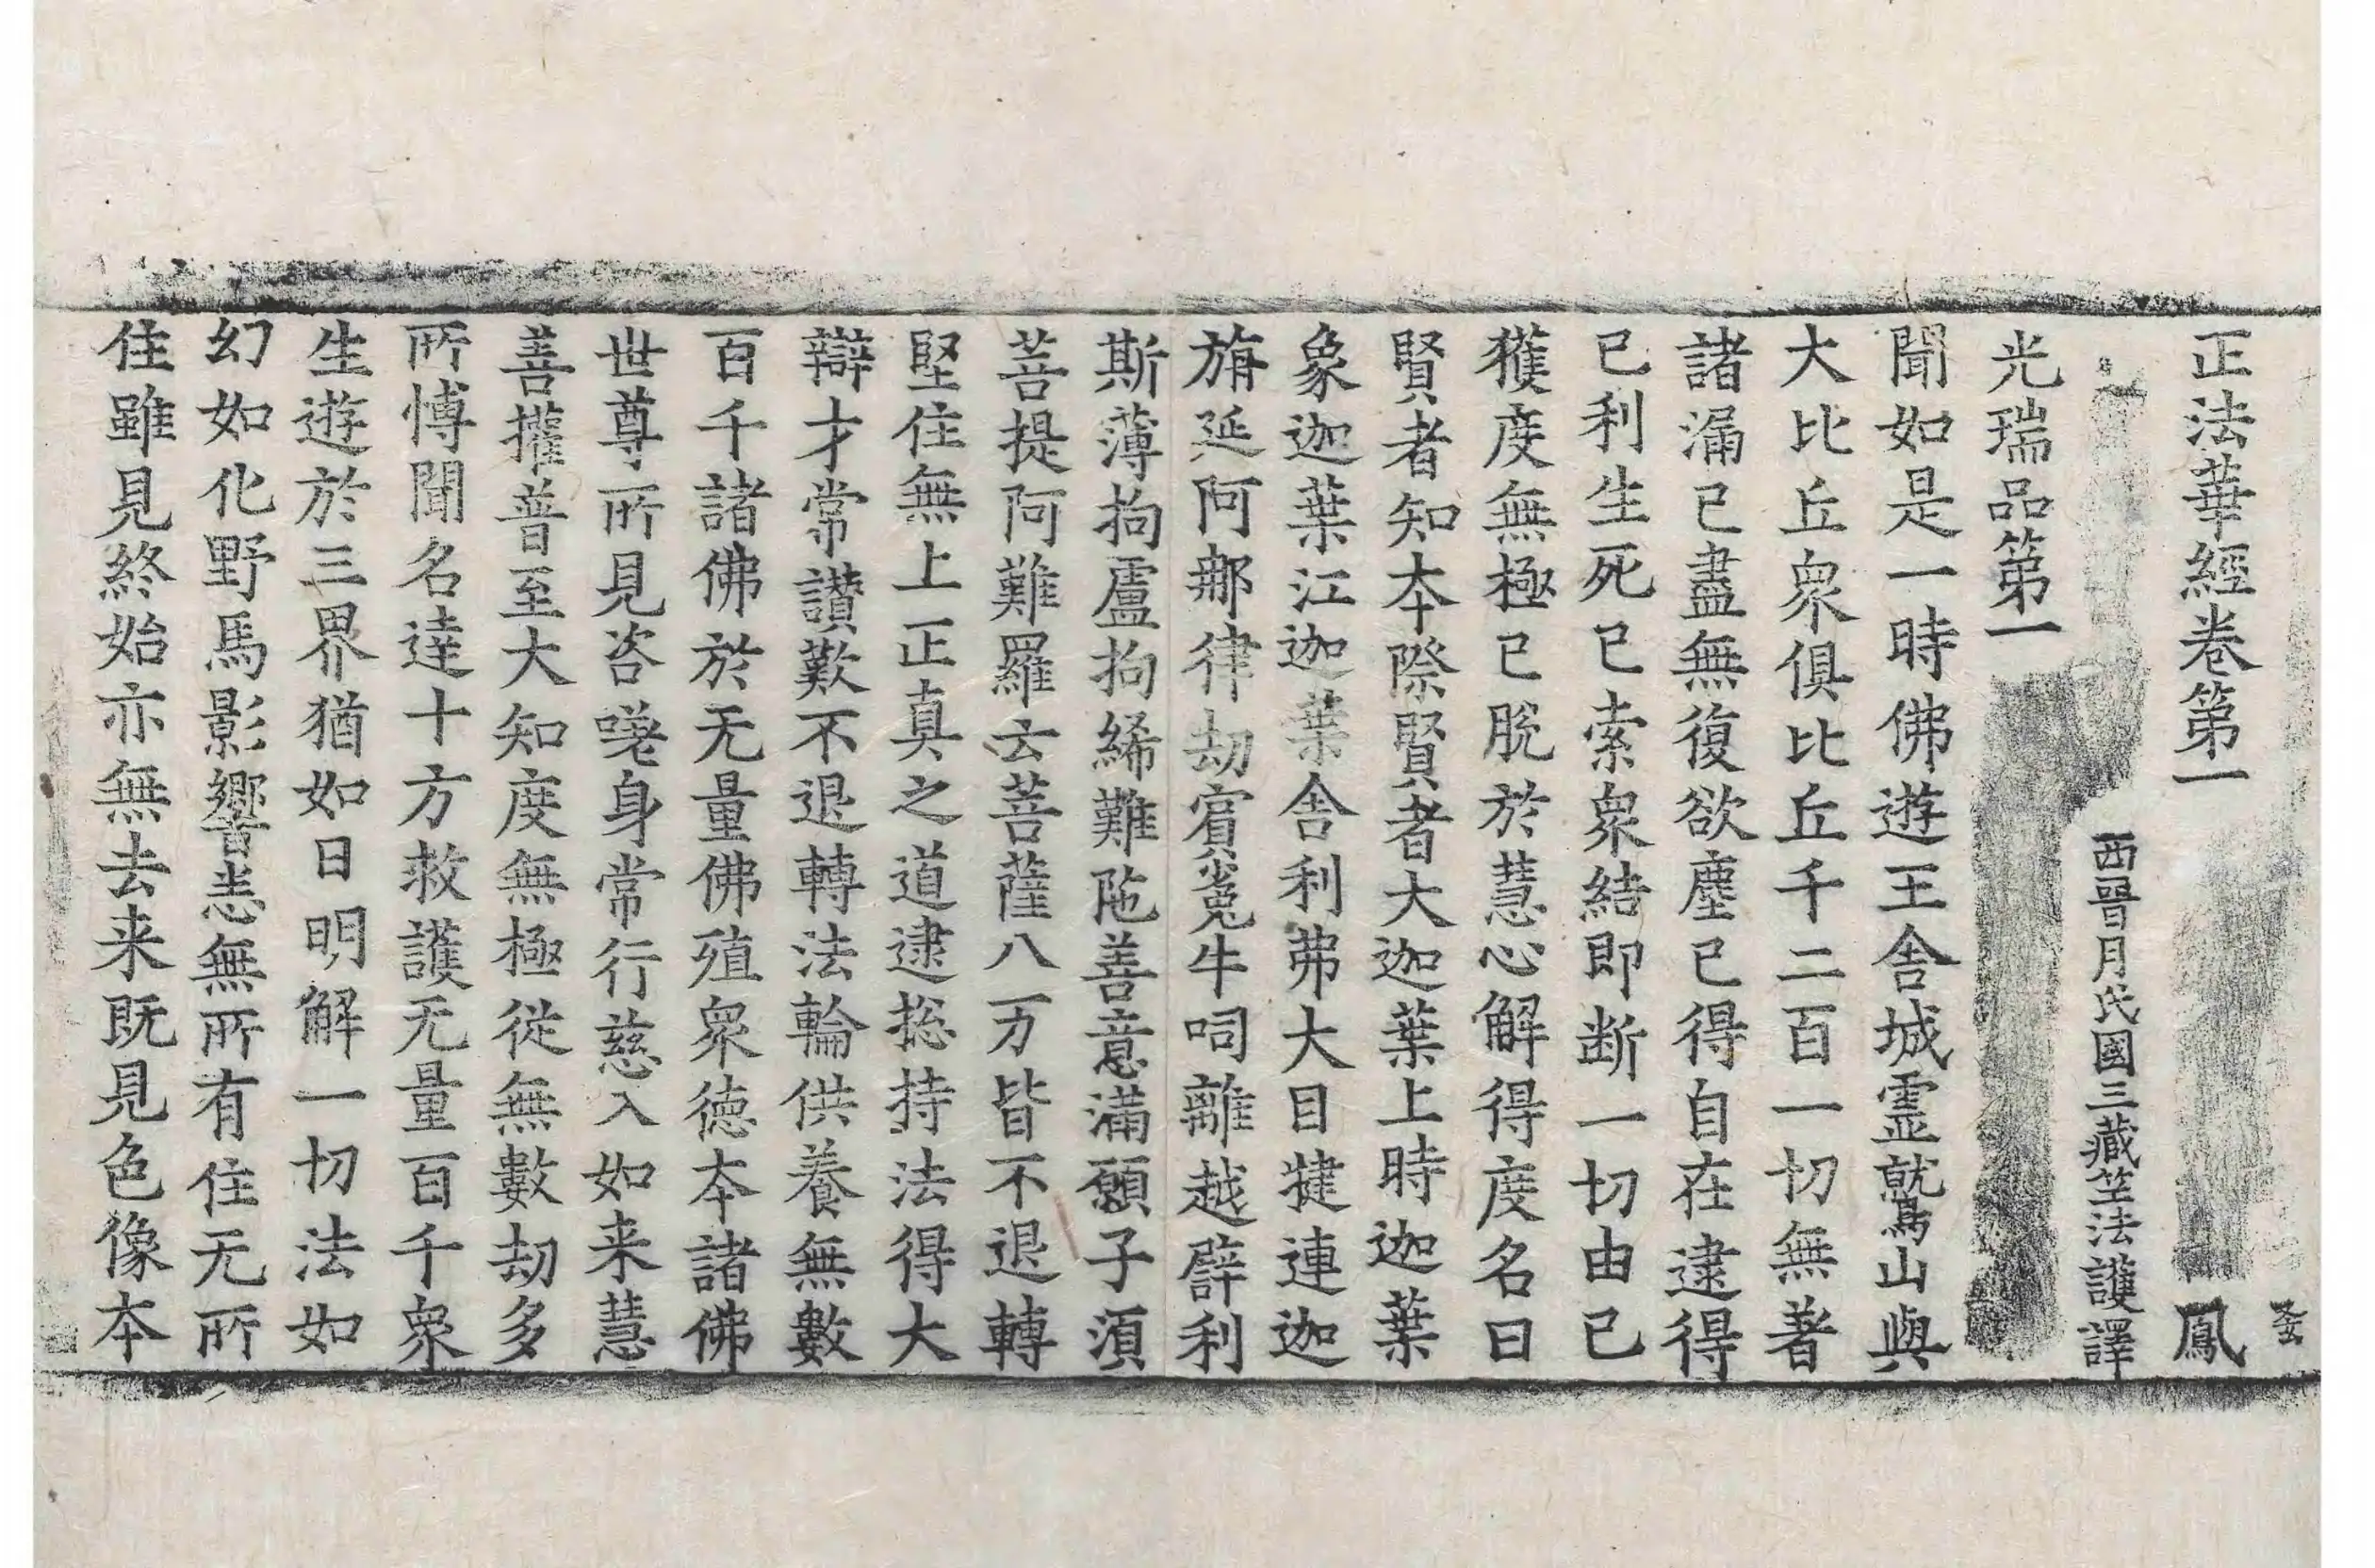 正法華經卷第一 鳳
西晉月氏國三藏竺法護譯
光瑞品第一
聞如是一時佛遊王舍城靈鷲山與
大比丘衆俱比丘千二百一切無著
諸漏已盡無復欲塵已得自在逮得
已利生死已索衆結即断一切由已
獲度無極已脫於慧心解得度名曰
賢者知本際賢者大迦葉上時迦葉
象迦葉江迦葉舍利弗大目揵連迦
旃延阿那律劫賓㝹牛呞離越譬利
斯薄拘盧拘絺難陁善意滿願子須
菩提阿難羅云菩薩八万皆不退轉
堅住無上正真之道逮捴持法得大
辯才常讃歎不退轉法輪供養無數
百千諸佛於无量佛殖衆德本諸佛
世尊所見咨嗟身常行慈入如来慧
善權普至大知度無極從無數劫多
所博聞名達十方救護无量百千衆
生遊於三界猶如日明解一切法如
幻如化野馬影響悉無所有住无所
住雖見終始亦無去来既見色像本